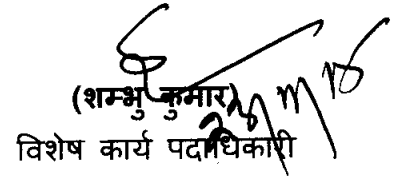 (शम्भु कुमार)
विशेष कार्य पदाधिकारी